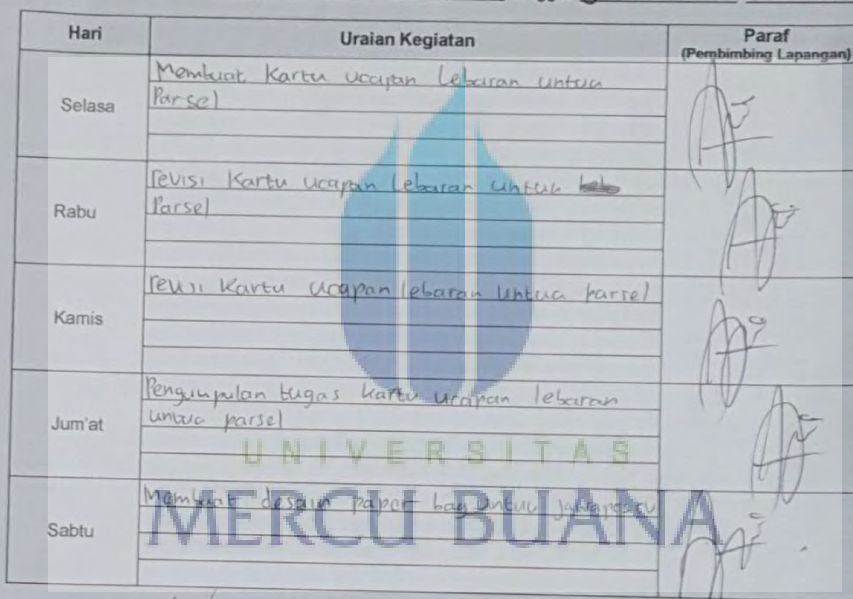 Hari
Uraian Kegiatan
Paraf
(Pembimbing Lapangan)
Selasa
Membuat Kartu ucapan Lebaran untuk
Parsel
Rabu
revisi Kartu ucapan lebaran untuk
Parsel
Kamis
revisi Kartu ucapan lebaran untuk parsel
Jum'at
Pengumpulan tugas kartu ucapan lebaran
untuk parsel
Sabtu
Membuat desain paper bag untuk
UNIVERSITAS
MERCU BUANA